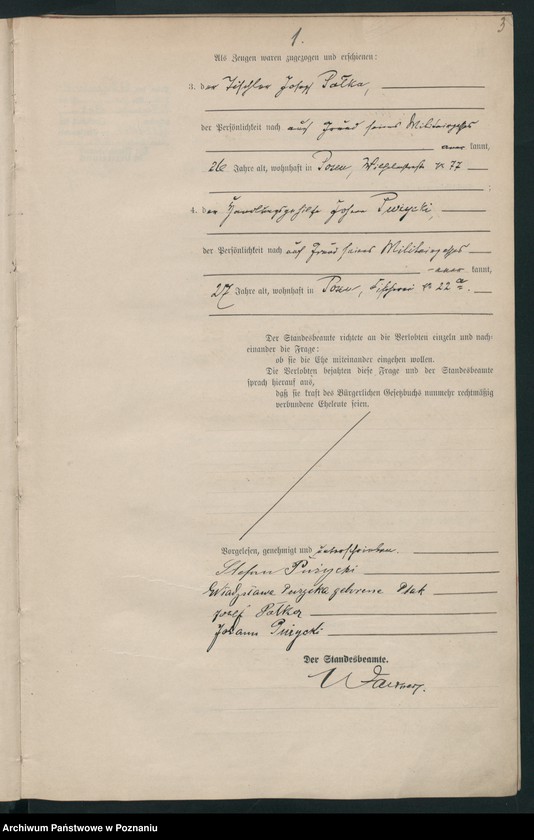 3
1.
Als Zeugen waren zugezogen und erschienen:
3. der Tischler Josef Patka,
der Persönlichkeit nach auf Grund seines Militairpasses
aner kannt,
26 Jahre alt, wohnhaft in Posen, Wilhelmstraße № 77
;
4. der Handlungsgehilfe Johann Pużycki,
der Persönlichkeit nach auf Grund seines Militairpasses
aner kannt,
27 Jahre alt, wohnhaft in Posen, Fischerei № 22 a.
Der Standesbeamte richtete an die Verlobten einzeln und nach-
einander die Frage:
ob sie die Ehe miteinander eingehen wollen.
Die Verlobten bejahten diese Frage und der Standesbeamte
sprach hierauf aus,
daß sie kraft des Bürgerlichen Gesetzbuchs nunmehr rechtmäßig
verbundene Eheleute seien.
Vorgelesen, genehmigt und unterschrieben.
Stefan Pużycki
Władysława geborene Ptak
Josef Patka
Johann Pużycki
Der Standesbeamte.
Archiwum Państwowe w Poznaniu